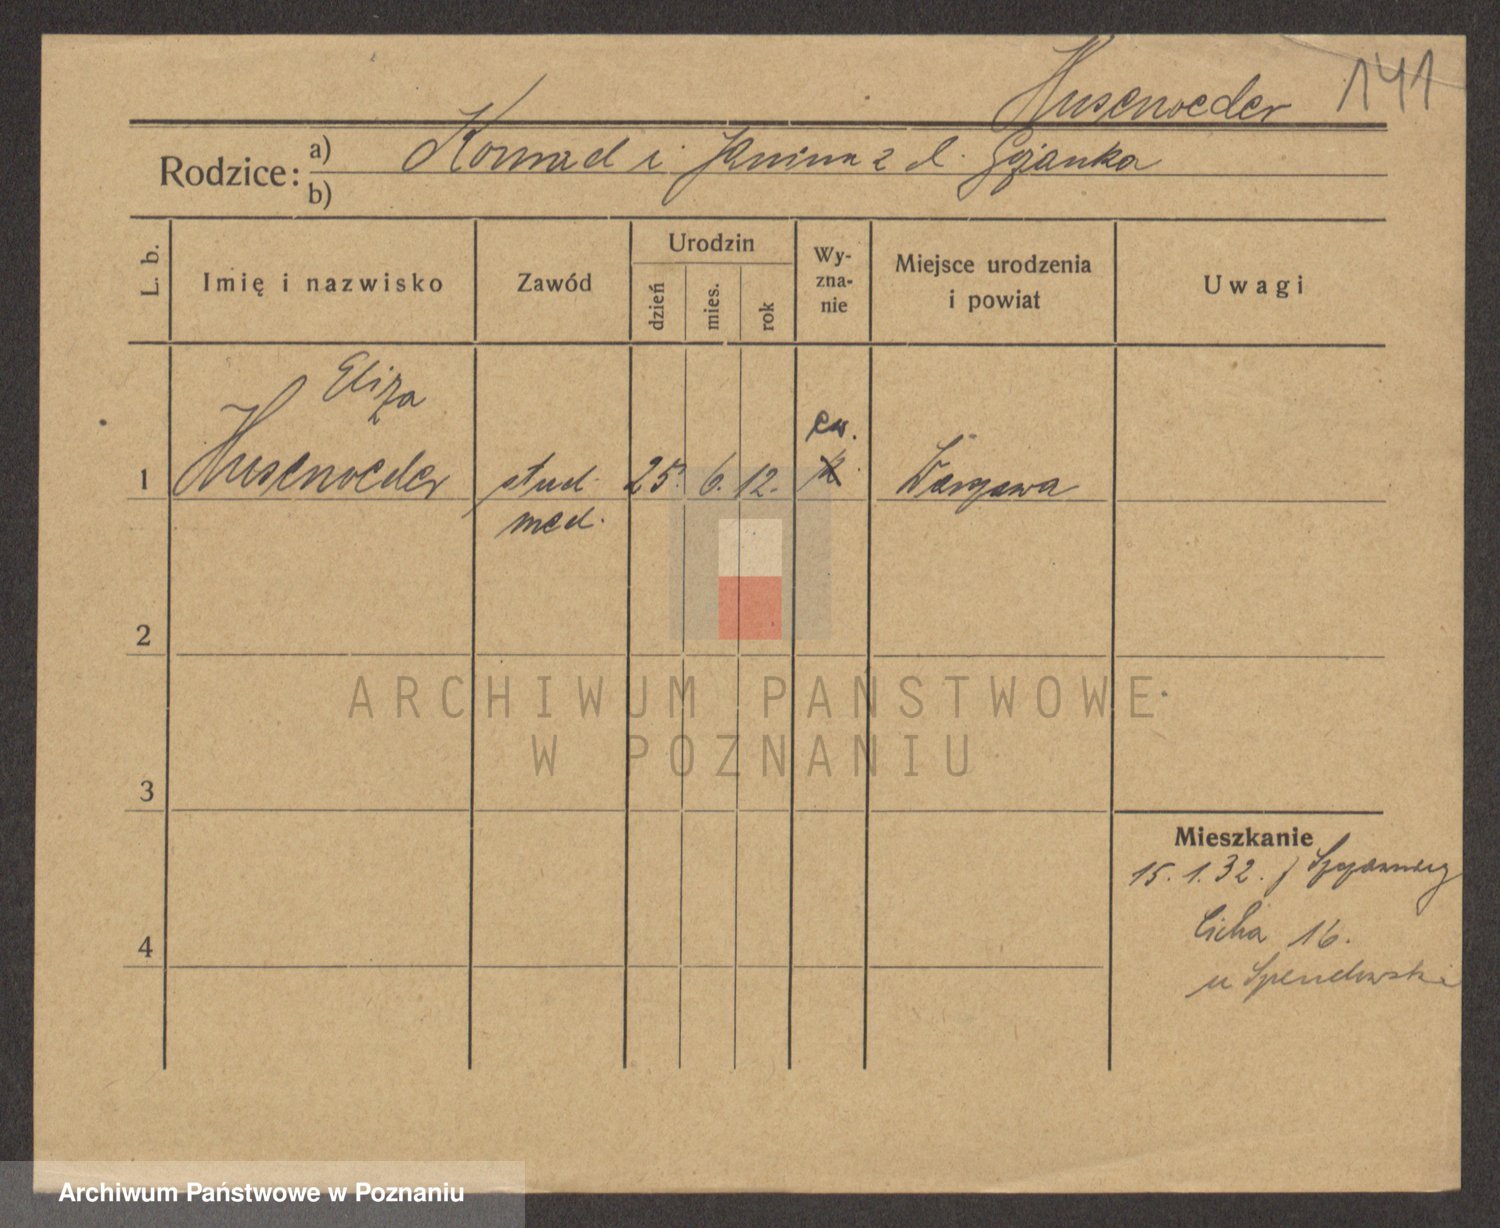 Husenoeder 141
Rodzice: a) Konrad i Janina z d.
b)
L. b. Imię i nazwisko Zawód Urodzin dzień mies. rok Wy-zna-nie Miejsce urodzenia i powiat Uwagi
Eliza
ew.
1 Husenoeder stud. 25. 6. 12. k. Warszawa
med.
2
ARCHIWUM PAŃSTWOWE
W POZNANIU
3
Mieszkanie
15.1.32.
4 Cicha 16.
u
Archiwum Państwowe w Poznaniu